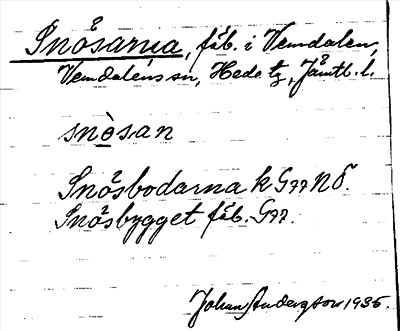 Snåsarna, fäb. i Vemdalen,
Vemdalens sn, Hede tg, Jämtl. l.
snèsan
Snåsbodarna k G77 NÖ.
Snåsbygget fäb. G77.
Johan Anderzson 1935.